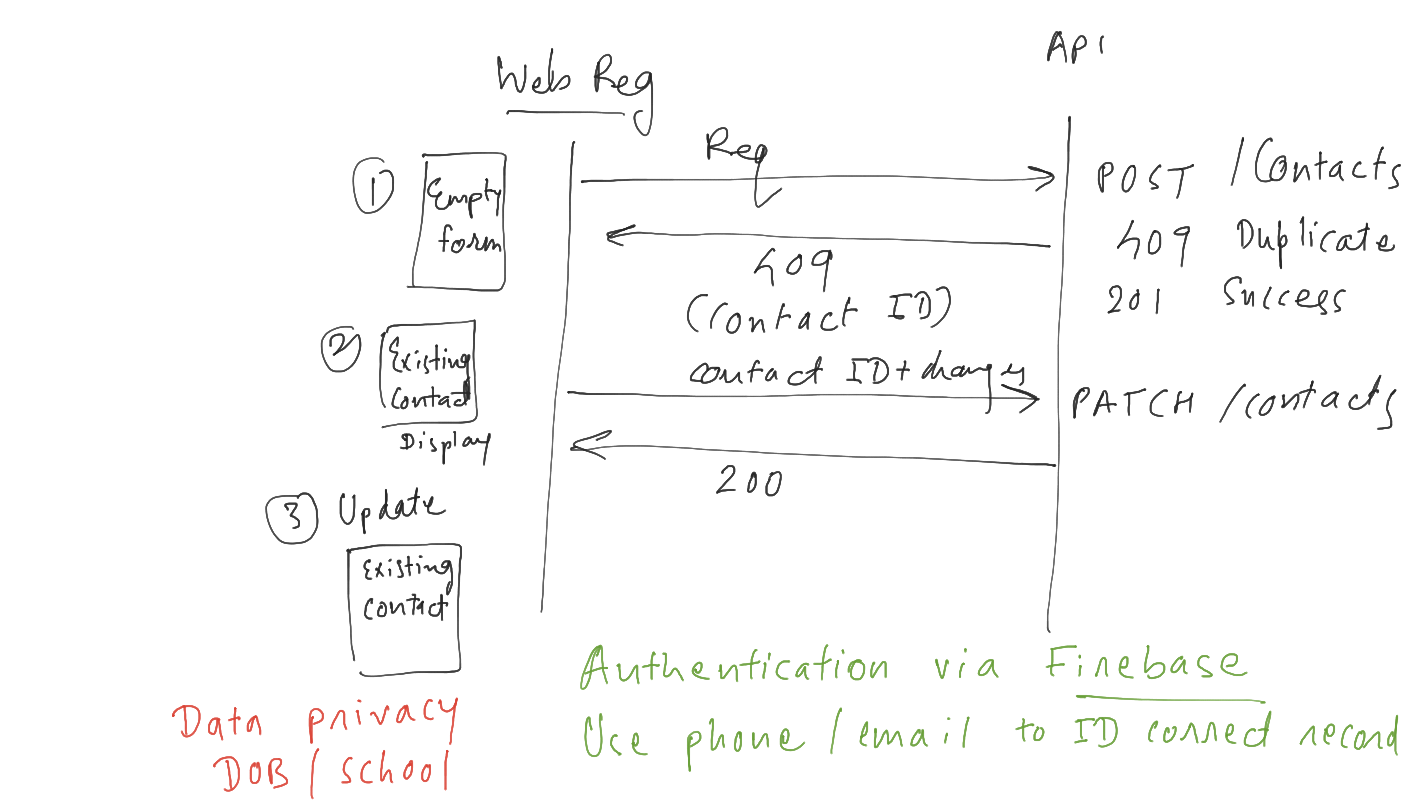 Web Reg
API
1
Empty
form
Req
POST /Contacts
409
409 Duplicate
(Contact ID)
201 Success
2
Existing
Contact
Display
contact ID + changes
PATCH /contacts
200
3 Update
Existing
contact
Authentication via Firebase
Use phone / email to ID correct record
Data privacy
DOB / school